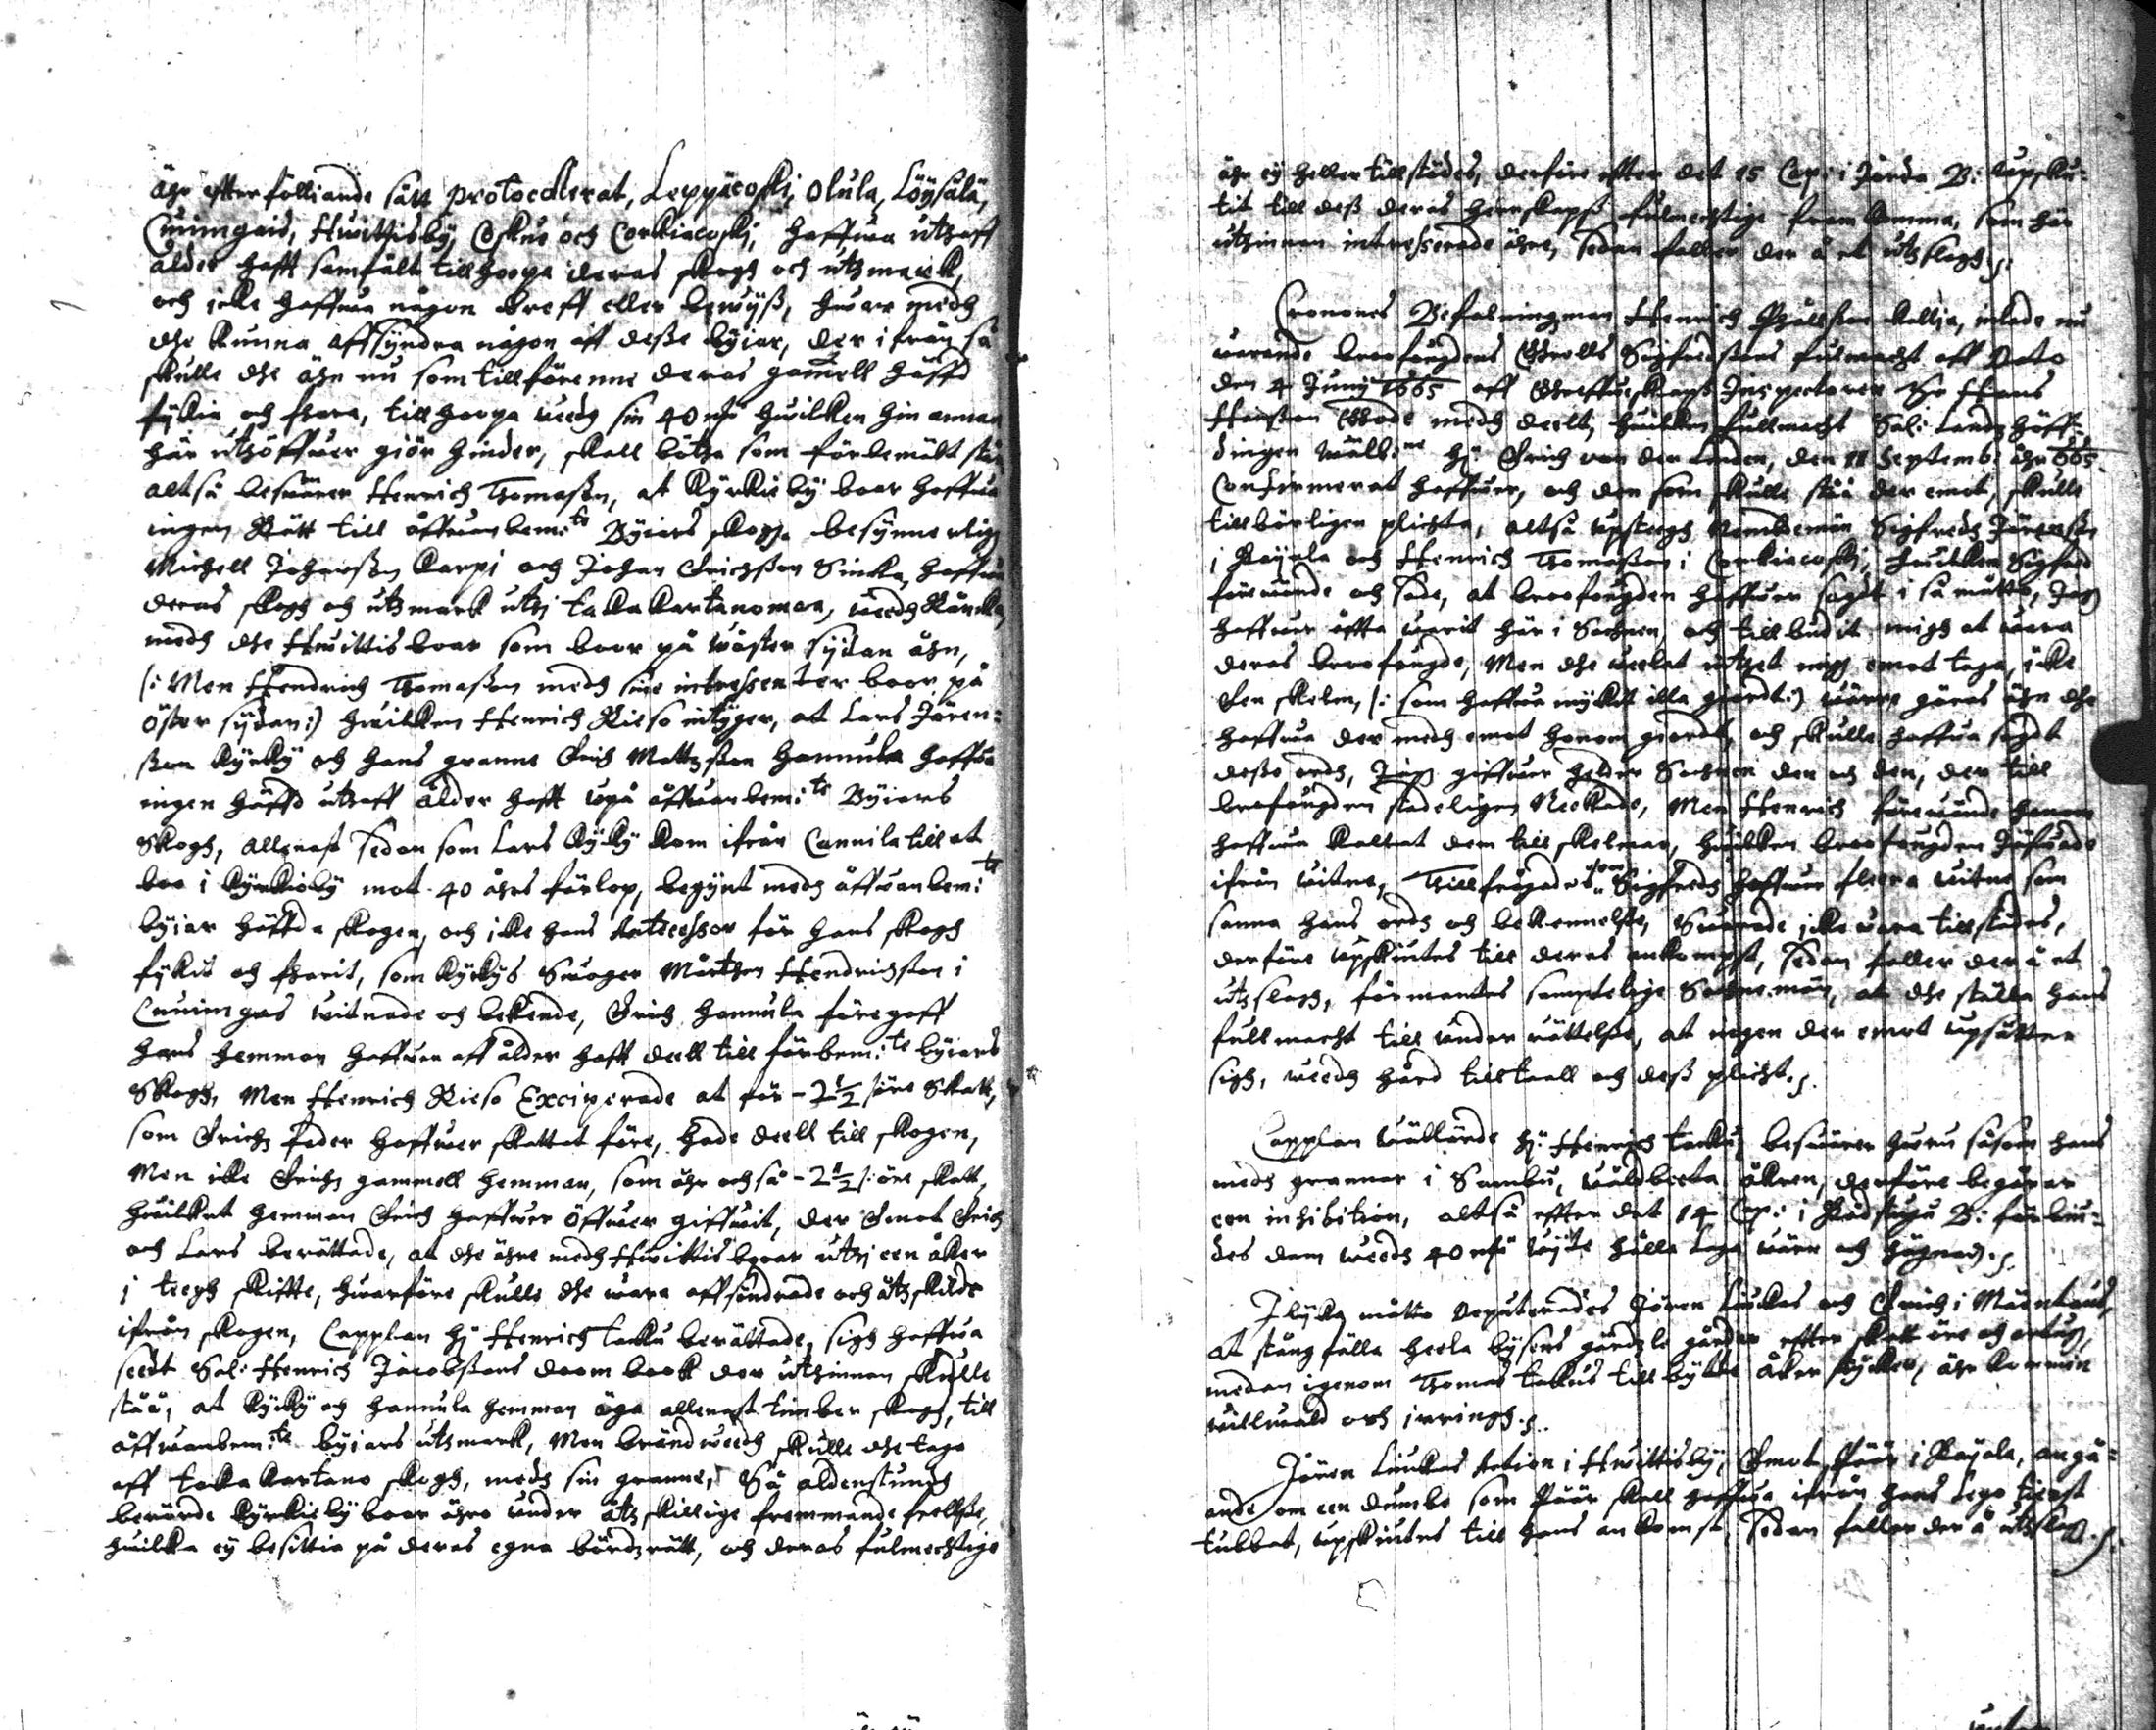 ähr effterfölliande sätt protocollerat, Leppäcoski, Olula, Löysälä,
Cuuingais, Huittisby, Cskus och Corkiacoski, haffua uthaff
ålder hafft samfält tillhoopa deras skogh och uthmarck,
och icke haffua någon breff eller bewijß, huar medh
dhe kunna affsyndra någon aff deße byiar, der ifrån så
skulle dhe ähn nu som tillförenne deras gamell häffd
fykia och fhara, tillhoopa weedh sin 40 mk huilken hin annan
här uthöffuer giör hinder, skall böthe som förbemält står
altså besuärer Henrich Thomaßon, at Kyrkieby boar haffua
ingen Rätt till offuanbem:te Byiars skogh. besynnerligh
Michell Johanßon Karpi och Johan Erichßon Sinka, haffua
deras skogh och uthmark uthi takakartanomaa, weedh Räncka,
medh dhe Huittisboar som boor på wäster sijdan åhn,
(: Men Hendrich Thomaßon medh sine intressenter boor på
öster sijdan:) huilken Henrich Rieso intyger, at Lars Jören=
ßon Kyrky och hans granne Erich Mattzßon Hannula haffua
ingen häffd uthaff ålder hafft upå offuanbem:te Byiars
Skogh, allenast sedan som Lars Kyky kom ifrån Cannila till at
boo i Kyrkioby mot 40 åhrs förlop, begynt medh offuanbem:te
byiar häffda skogen, och icke hans Antecessor för hans skogh
fykit och fharit, som Kykys Swoger Mårthen Hendrichßon i
Cuuingas witnade och bekende, Erich Hannula föregaff
hans hemman haffuer aff ålder hafft deell till förbem:te byiars
Skogh, Men Henrich Rieso Exciperade at för - 2 1/2 öre Skatt,
som Erichz fader haffuer skattat före, hade deell till skogen,
Men icke Erichz gammell hemman, som ähr ochså - 2 1/2 öre skatt,
huilket hemman Erich haffuer öffuer giffuit, der Emot Erich
och Lars berättade, at dhe ähre medh Huittisboar uthi een åker
i teegh skiffte, huarföre skulle dhe wara affsindrade och åthskilde
ifrån skogen, Capplan Hr Henrich tacku berättade, sigh haffua
seedt Sal: Henrich Jacobßons doom book der uthinnan skulle
ståå, at Kyky och Hannula hemman äga allenast timber skogh, till
offuanbem:te byiars uthmark, Men brändweedh skulle dhe taga
aff taka kartano skogh, medh sin granne, Så aldenstundh
berörde Kyrkieby boar ähro under åthskillige fremmande frellße,
huilka ey besittia på deras egna bördzrätt, och deras fulmechtige
ähr ey heller tillstädes, derföre effter det 15 Cap: i Jorda B: upsku=
tit till deß deras herrskapß fulmechtige fram komma, som här
uthinnan intresserade ähre, sedan faller der å et uthslagh.
Cronones Befalningzman Henrich Påålßon Kallia, inlade nu
warande broofougdens Grells Sigfredßons fulmacht aff Dato
den 4 Junij 1665 aff Greffueskapß Inspectoren Sr Hans
Hanßon medh deelt, huilken fullmacht Sal: Landzhöff=
dingen Wälb:ne Hr Erich von der Linden, den 11 Septemb: åhr 665
Confirmerat haffuer, och den som skulle stå der emot, skulle
tillbörligen plichta, altså upsteegh Nembdemän Sigfredh Jörenßon
i Raijala och Henrich Thomaßon i Corkiacoski, huilken Sigfred
förewände och sade, at broofougden haffuer sagdt i så måtto, Jagh
haffuer offta warit här i Sochnen, och tillbudit migh at wara
deras broofougde, Men dhe weelat inthet migh emot taga, icke
den skelm, (: som haffua myckit illa giordt:) wärre göras ähn dhe
haffua der medh emot honom giordt, och skulle haffua sagdt
deße ordh, Jagh giffuer heder Sochnen den och den, der till
brofougden stadeligen Neekade, Men Henrich förewände honom
haffua kallat dem till skelmar, huilken broofougden Jäfuade
ifrån witne, Tillfrågades om Sigfredh haffuer fleera witne som
sanna hans ordh och bekennelße, Swarade icke wara tillstädes,
derföre upskutes till deras ankompst, sedan faller der å et
uthslagh, förmantes samptelige Sochnemän, at dhe ställa hans
fullmacht till underrättelße, at ingen der emot upsätter
sigh, weedh hård tilltaall och deß plicht.
Capplan Wällärde Hr Henrich tacku, besuärer huru såsom hans
medh grannar i Sambu, wåldbeeta åkren, derföre begärar
een inhibition, altså effter det 14 Cap: i Bådstugu B: förbiu=
des dem weedh 40 mk wijte hålla laga wärn och hägnadh.
I lijka måtto deputerades Jören Luckas och Erich i Mäenkaus,
at stångfälla heela bysens gärdzle gårder effter skatt öre och ortug,
medan igenom Thomas takus tillbytte åker stycker, ähr kommin
willwald och irringh.
Jören Luukas Action i Huittisby, Emot Påår i Raijala, angå=
ande om een dumbe som Påår skall haffua ifrån hans lego tienst
tubbat, upskutes till hans ankomst, sedan faller der å uthslag.